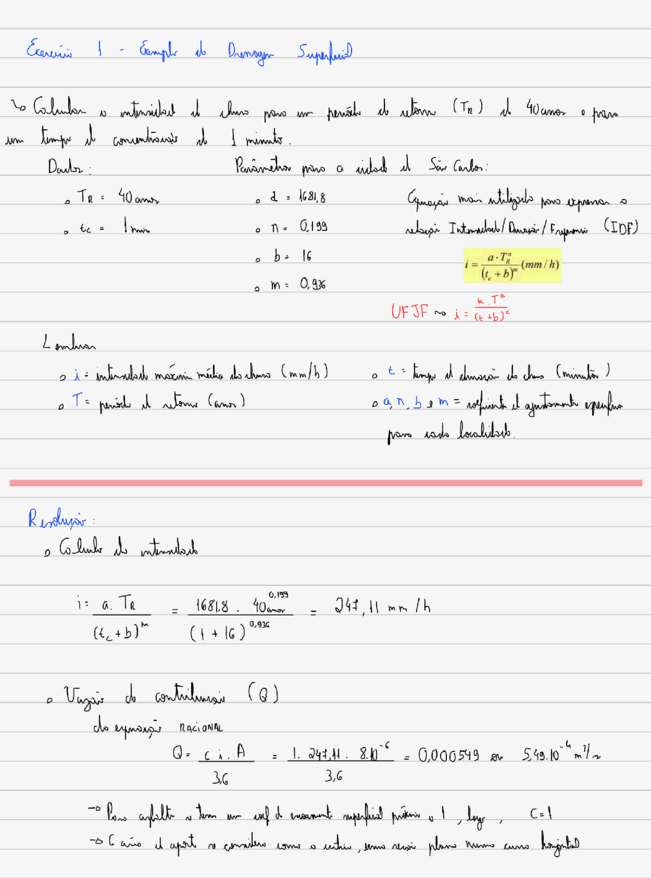 Exercício 1 - Exemplo de Drenagem Superficial
↳ Calcular a intensidade de chuva para um período de retorno (TR) de 40 anos e para
um tempo de concentração de 1 minuto.
Dados: Parâmetros para a cidade de São Carlos:
TR = 40 anos a = 1681,8 Equação mais utilizada para expressar a
tc = 1 min n = 0,199 relação Intensidade/Duração/Frequência (IDF)
b = 16 i = a · T_R^n / (t_c + b)^m (mm/h)
m = 0,936
UFJF ~> i = K . T^a / (t + b)^c
Lembrar
i = intensidade máxima média da chuva (mm/h) t = tempo de duração da chuva (minutos)
T = período de retorno (anos) a, n, b e m = coeficiente de ajustamento específico
para cada localidade.
Resolução:
Calculo da intensidade
i = a. TR / (tc + b)^m = 1681.8 . 40anos^0,199 / (1 + 16)^0,936 = 247,11 mm/h
Vazão de contribuição (Q)
da equação RACIONAL
Q = c i . A / 3,6 = 1. 247,11 . 8.10^-6 / 3,6 = 0,000549 ou 5,49.10^-4 m³/s
→ Para asfalto se tem um coef de escoamento superficial próximo a 1, logo, C=1
→ C área de aport se considera como a entrie, plano numa curva horizontal